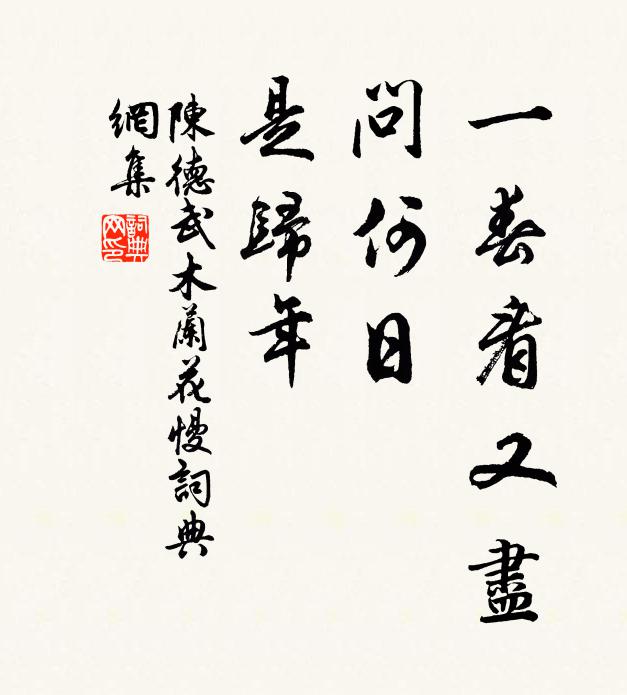 一春看又盡
問何日
是歸年
陳德武木蘭花慢詞典
網集
詞典
网印